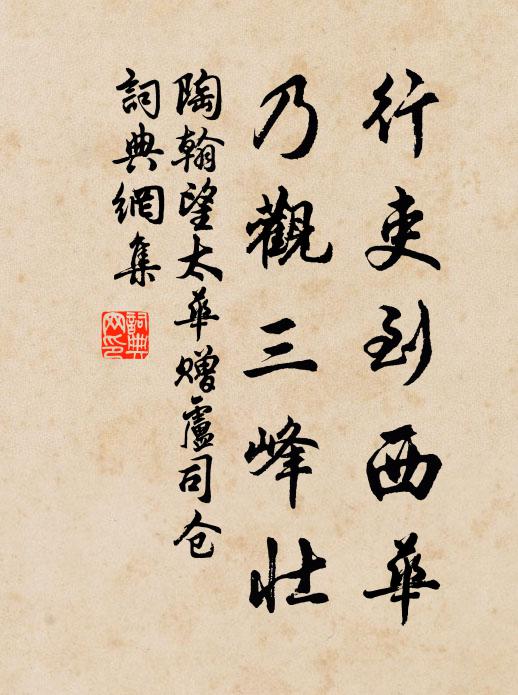 行吏到西華
乃觀三峰壯
陶翰望太華贈盧司仓
詞典網集
詞典
网印